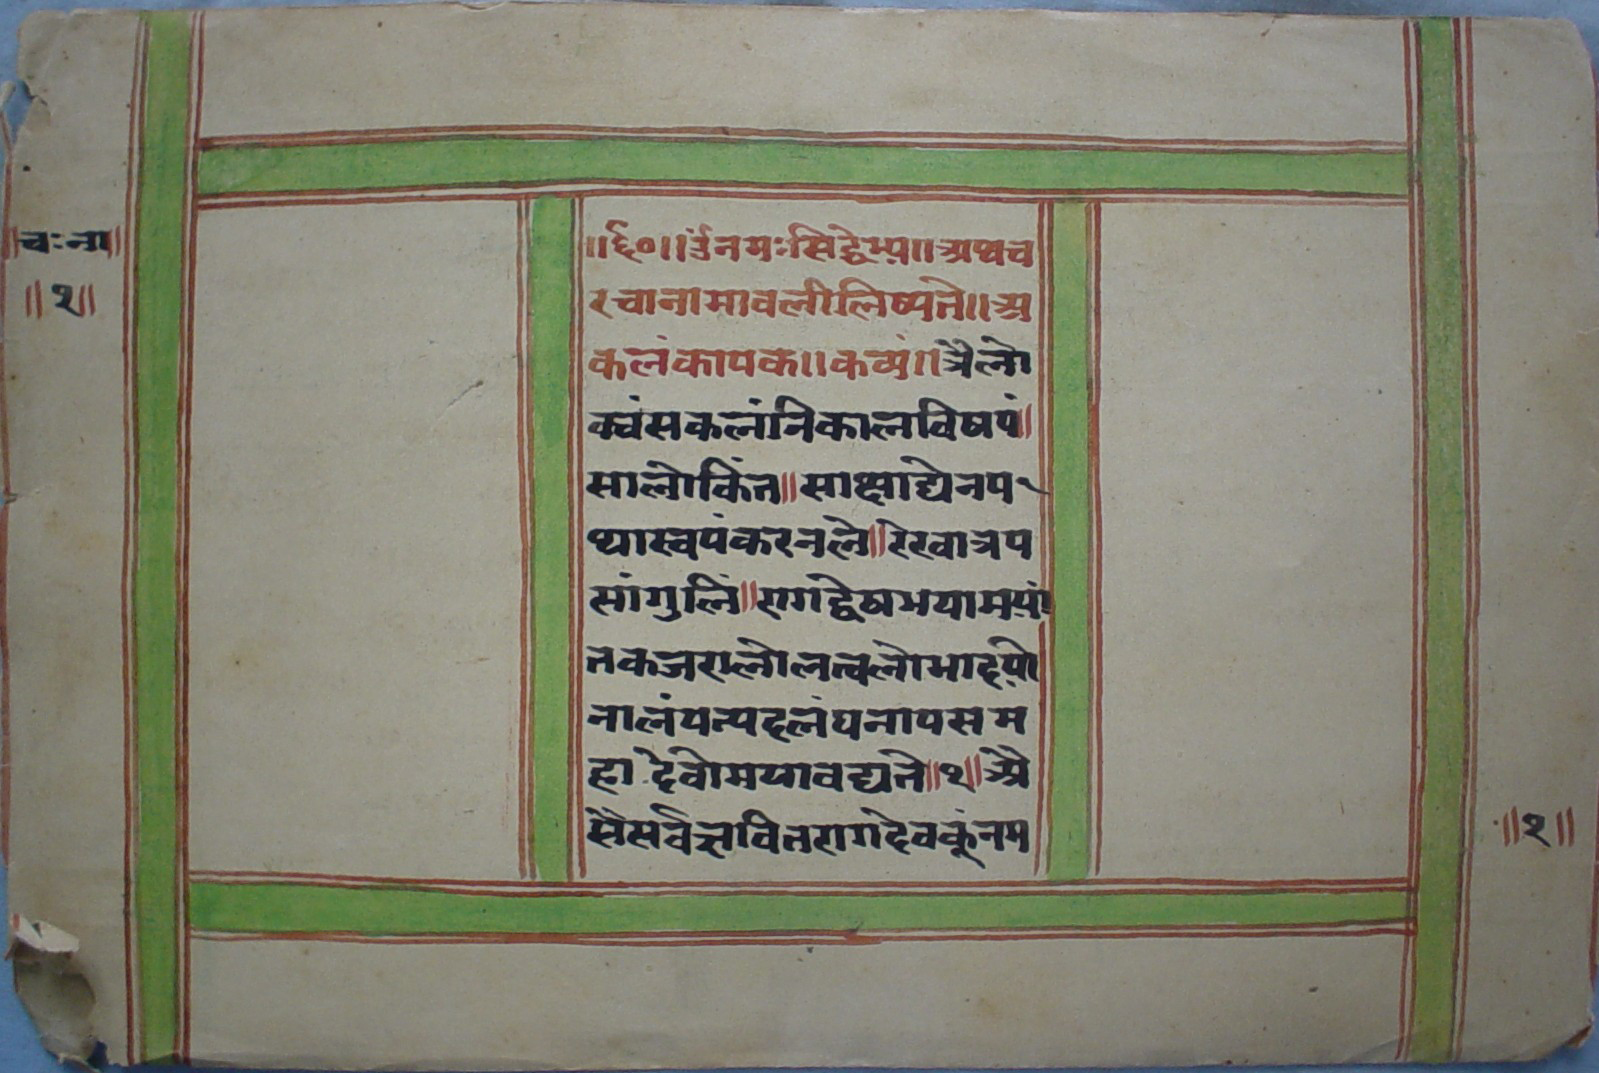 ॥चः ना॥
॥१॥
॥६०॥ॐनमःसिद्धेभ्य॥अथच
रचानामावलीलिष्यते॥अ
कलंकापक॥कव्यं॥त्रैलो
क्यंसकलंत्रिकालविषयं॥
सालोकिंत॥साक्षाद्येनप
थास्वयंकरतले॥रेखात्रय
सांगुलिं॥रागद्वेषभयामयां
तकजरालोलत्वलोभादयो
नालंयत्पदलंघनायसम
हादेवोमयावद्यते॥१॥अै
सैंसर्वज्ञवितरागदेवकूंनम
॥१॥